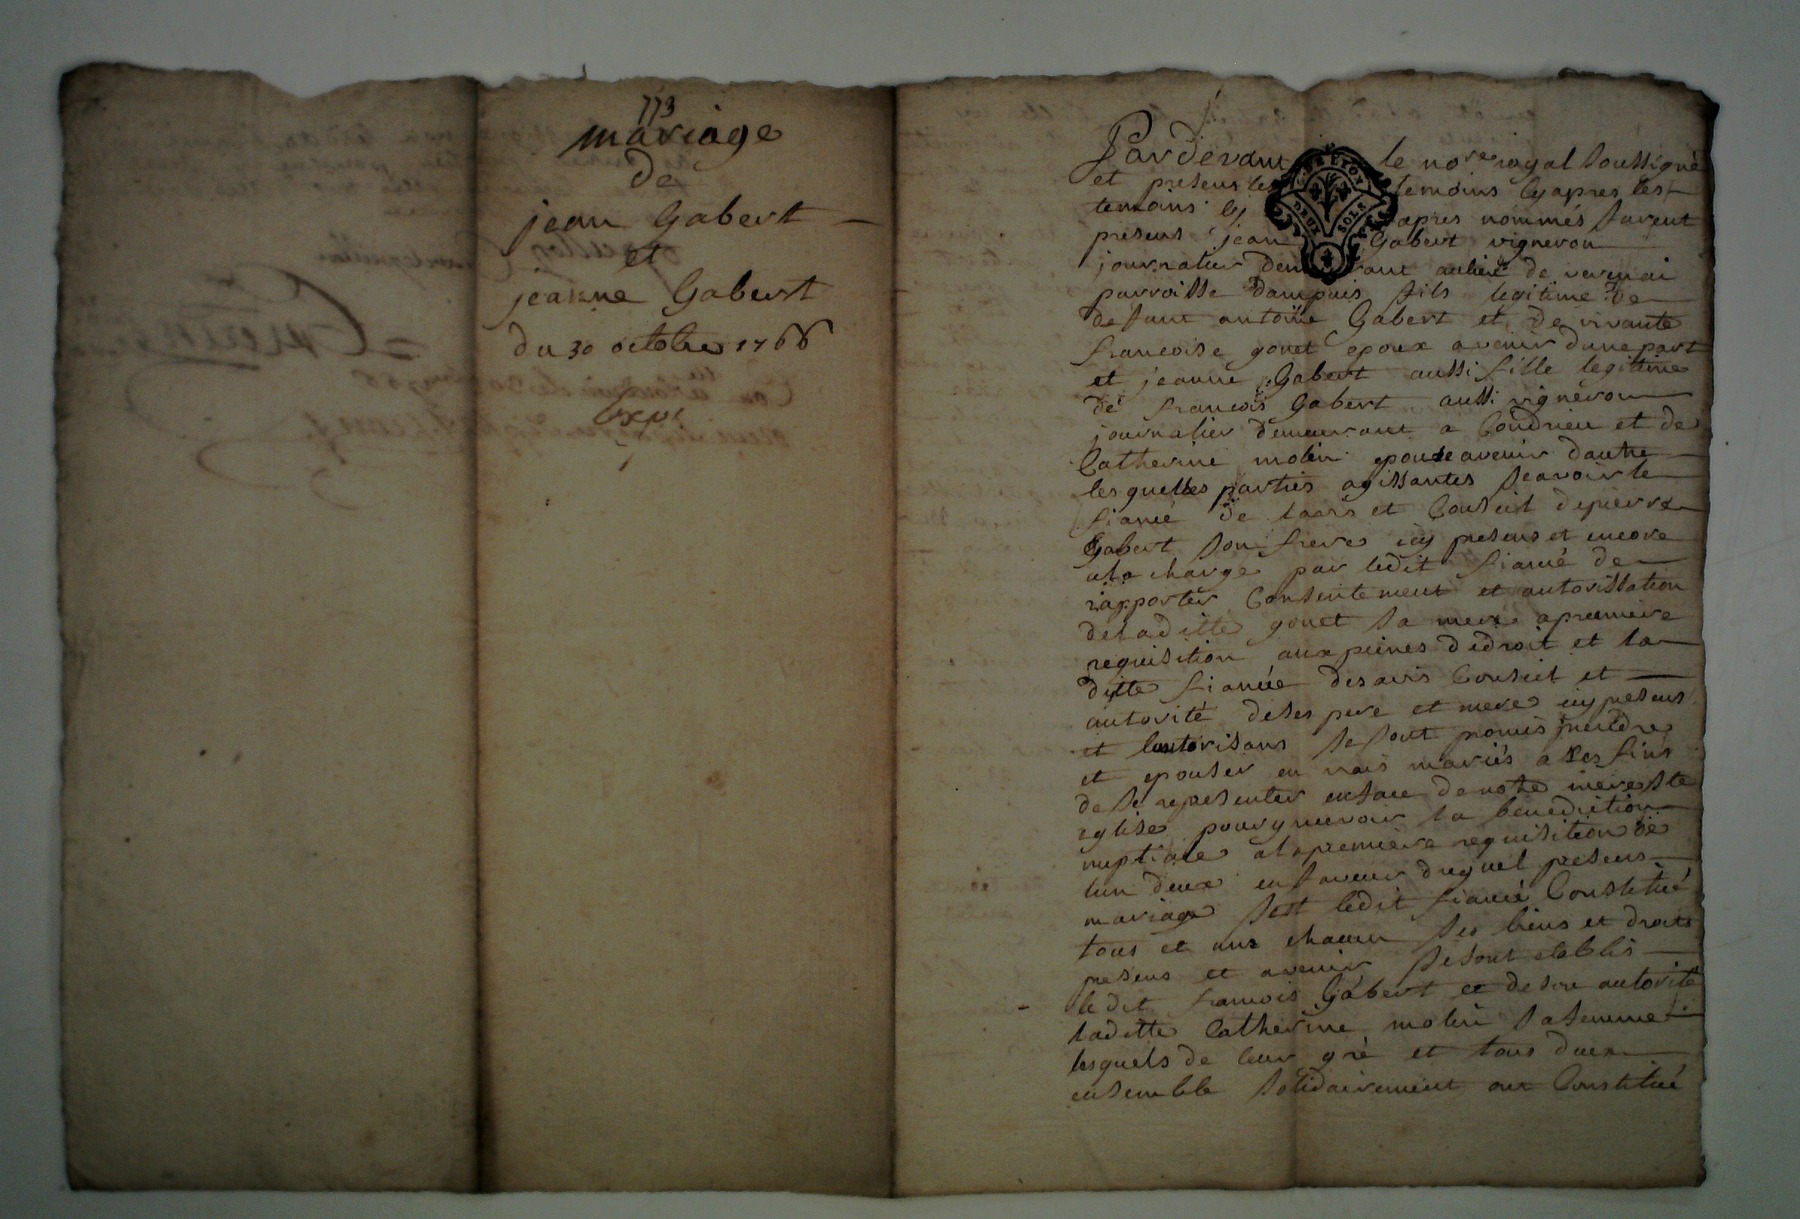 773
mariage
de
jean Gabert
et
jeanne Gabert
du 30 octobre 1766
Pardevant le nore royal soussigné
et presens les temoins cyapres les
temoins cy apres nommés furent
presens jean Gabert vigneron
journalier demeurant aulieu de verenai
parroisse dampuis fils legitime de
defunt antoine Gabert et de vivante
francoise gonet epoux avenir dune part
et jeanne Gabert aussi fille legitime
de francois Gabert aussi vigneron
journalier demeurant a Condrieu et de
Catherine molin epouse avenir dautre
lesquelles parties agissantes scavoir le
fiancé de lavis et Conseil depierre
Gabert son frere icy presens et encore
ala charge par ledit fiancé de
rapporter Consentement et autorissation
deladitte gonet sa mere apremiere
requisition aux peines dedroit et la
ditte fiancée desavis Conseil et
autorité deses pere et mere icy presens
et lautorisans se sont promis prendre
et epouser en vrais mariés a ses fins
de se representer enface denotre mere ste
eglise pouryrecevoir la benediction
nuptiale alapremiere requisition de
lun deux enfaveur duquel presens
mariage sest ledit fiancé Constitué
tous et uns chacun ses biens et droits
presens et avenir sesont etablis
ledit francois Gabert et deson autorité
laditte Catherine molin safemme
lesquels de leur gré et tous deux
ensemble solidairement ont Constitué
GENERATION
DEUX SOLS